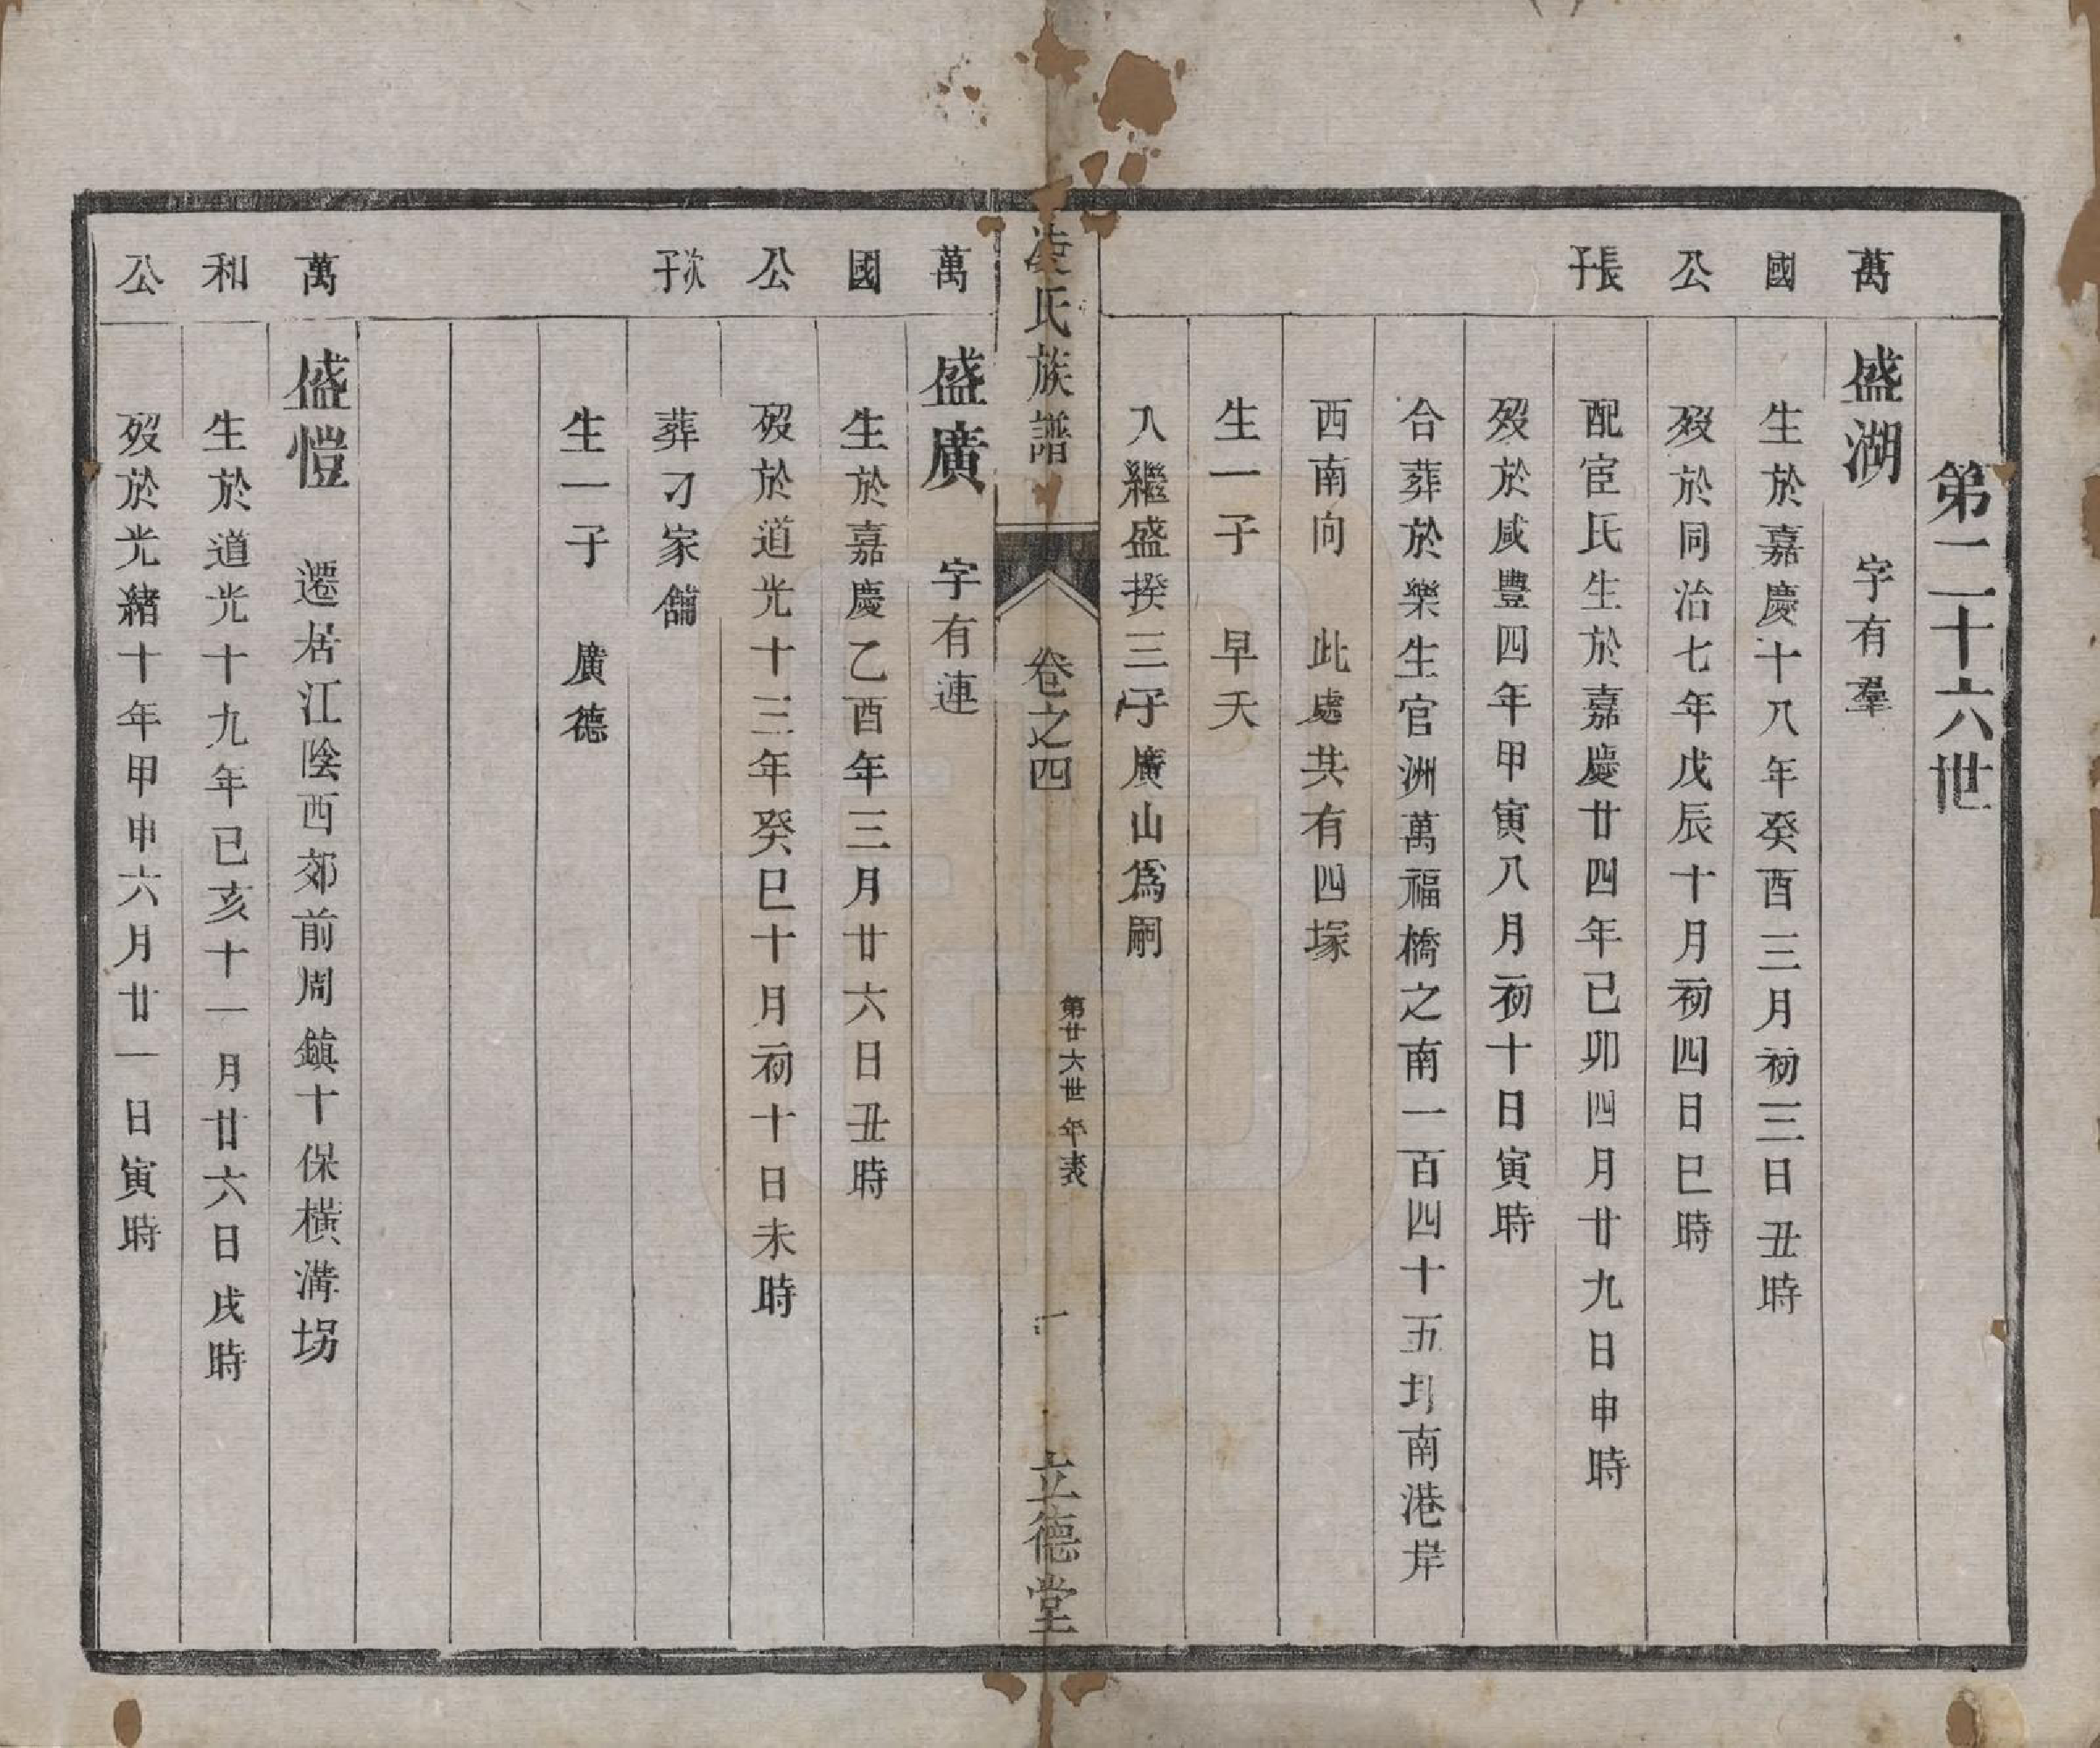 第二十六世
萬 盛湖 字有羣
國 生於嘉慶十八年癸酉三月初三日丑時
公 歿於同治七年戊辰十月初四日巳時
長子 配宦氏生於嘉慶廿四年己卯四月廿九日申時
歿於咸豐四年甲寅八月初十日寅時
合葬於樂生官洲萬福橋之南一百四十五圩南港岸
西南向 此處共有四塚
生一子 早夭
入繼盛揆三子廣山爲嗣
凌氏族譜 卷之四 第廿六世年表 一 立德堂
萬 盛廣 字有連
國 生於嘉慶乙酉年三月廿六日丑時
公 歿於道光十三年癸巳十月初十日未時
次子 葬刁家舖
生一子 廣德
萬 盛愷 遷居江陰西郊前周鎮十保橫溝堨
和 生於道光十九年已亥十一月廿六日戌時
公 歿於光緒十年甲申六月廿一日寅時